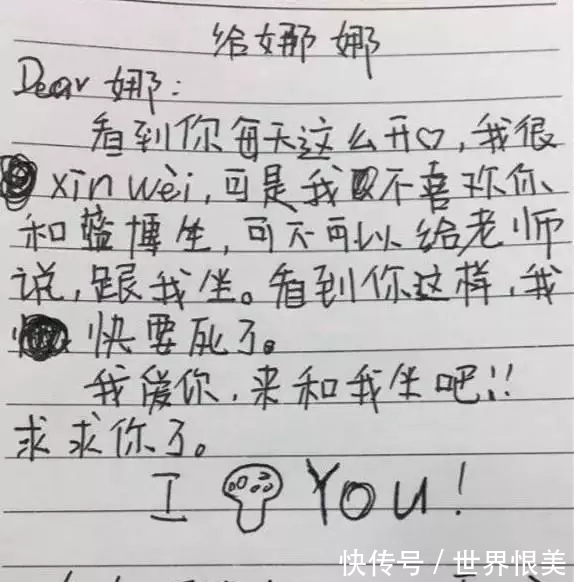 给娜娜
Dear 娜：
看到你每天这么开♡，我很
xin wèi，可是我不喜欢你
和蓝博生，可不可以给老师
说，跟我坐。看到你这样，我
快要死了。
我爱你，来和我坐吧!!
求求你了。
I You!
快传号/世界恨美